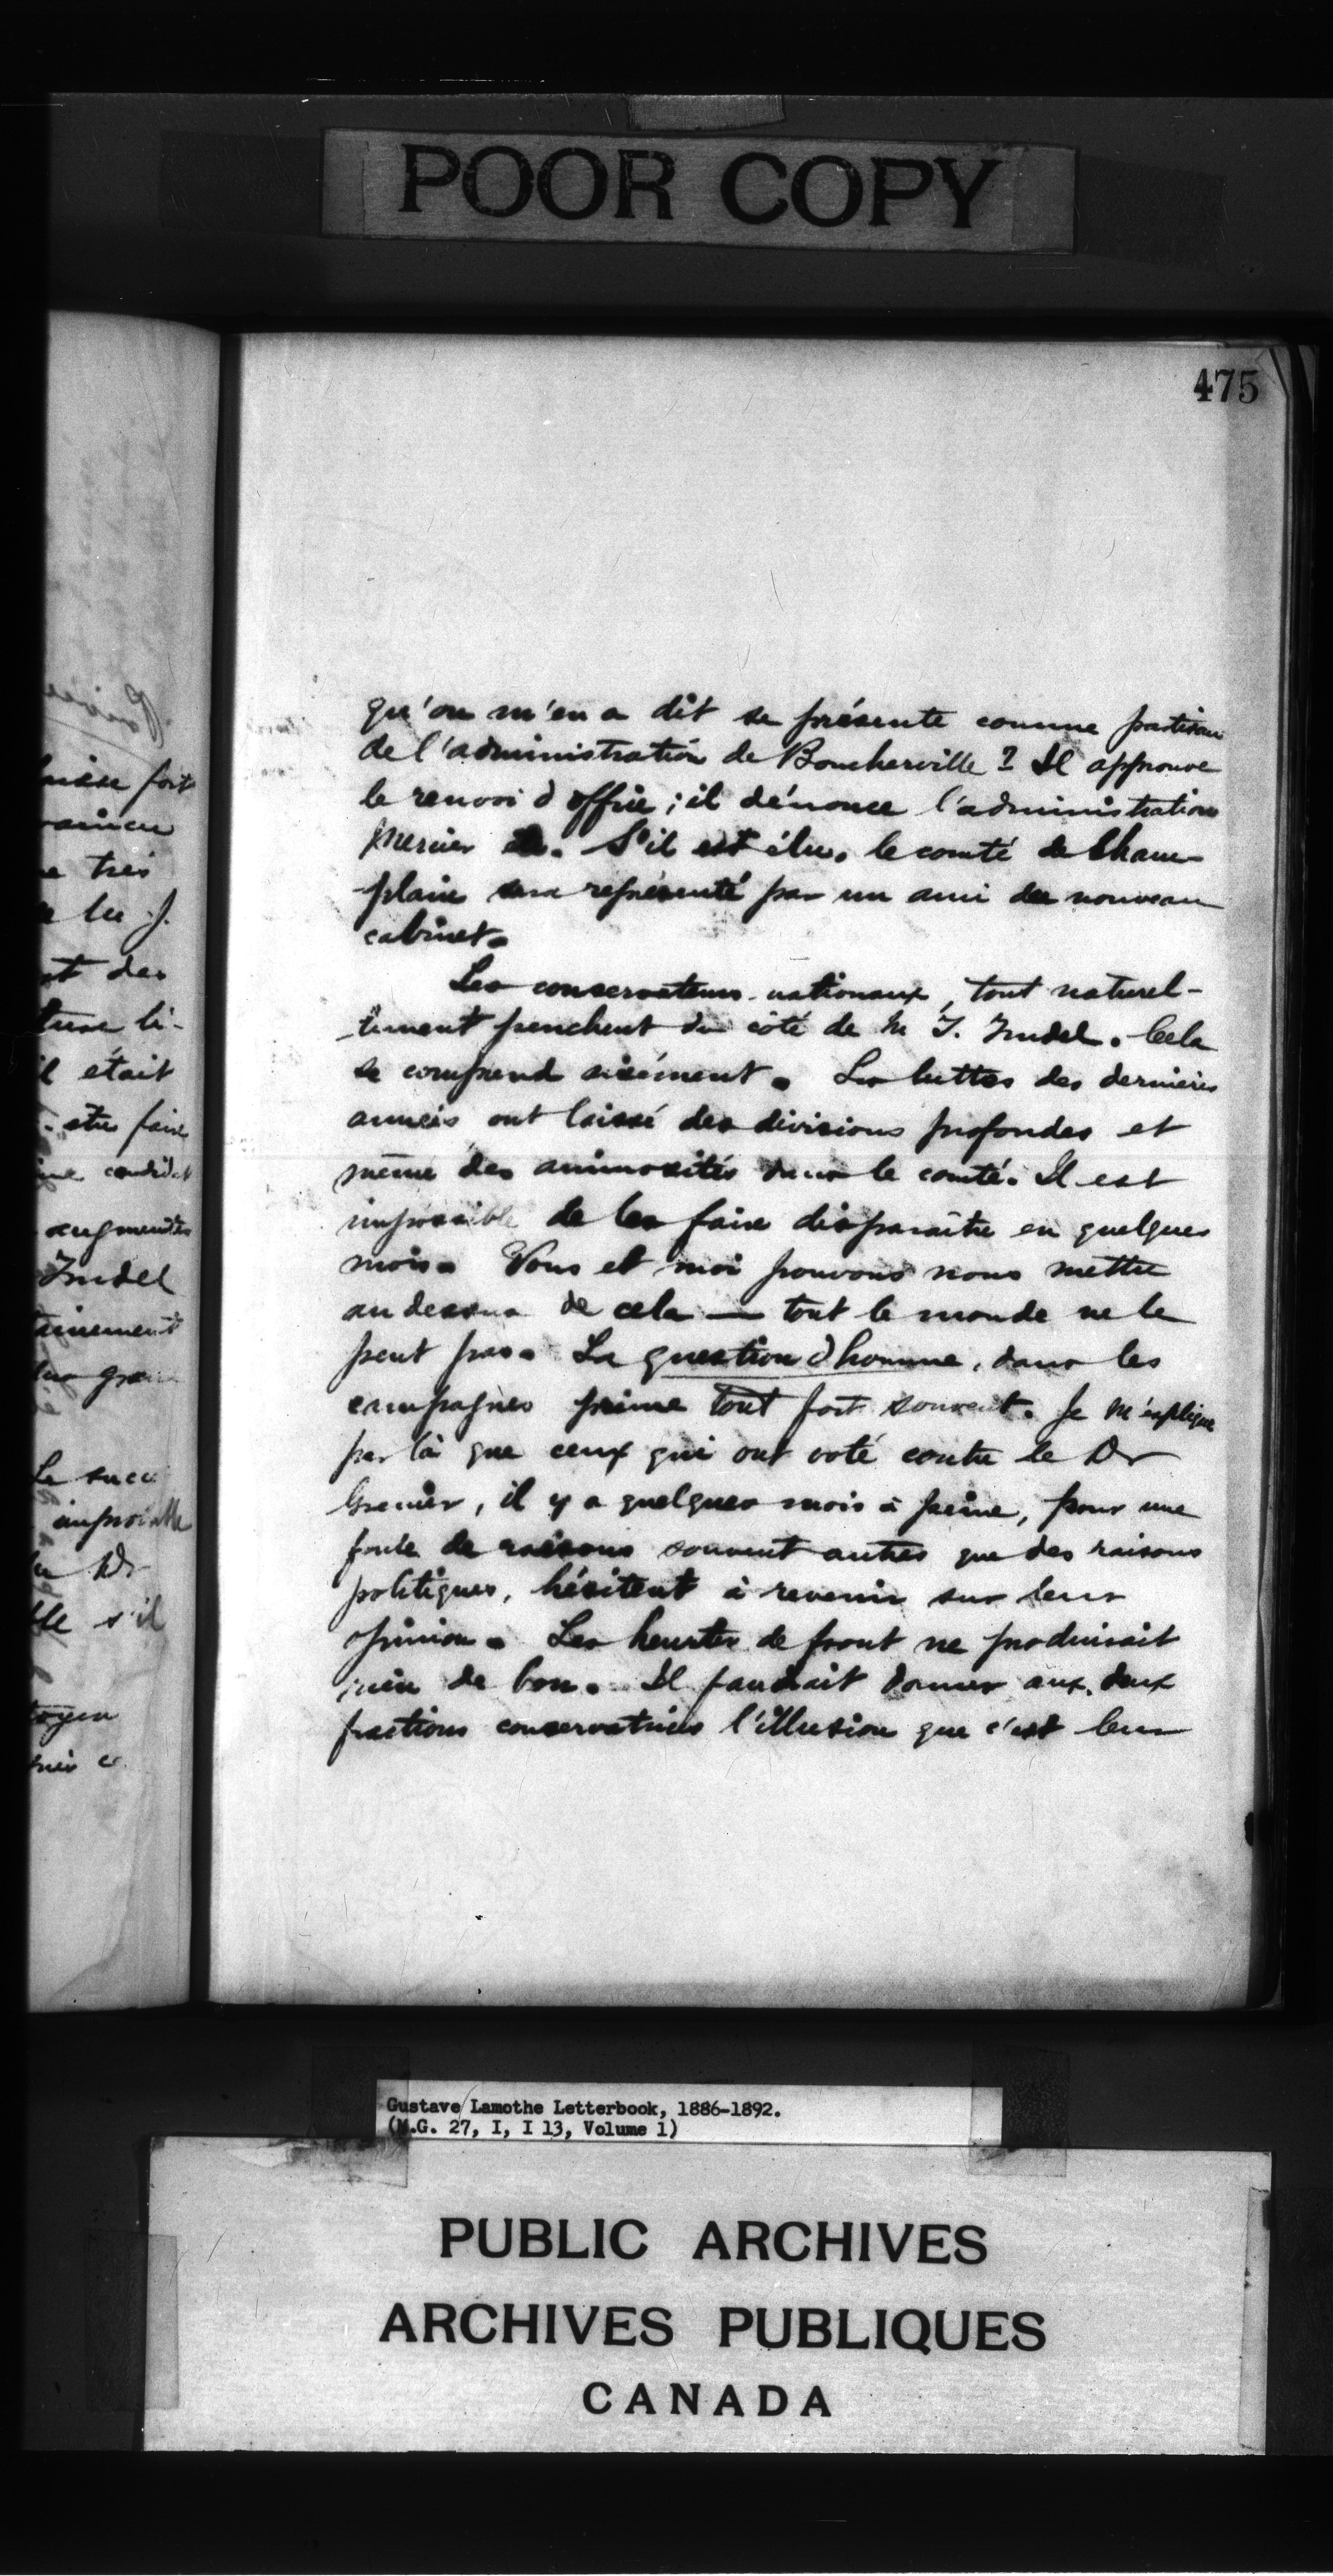 POOR COPY
475
qu'on m'en a dit se présente comme partisan
de l'administration de Boucherville ? Il approuve
le renvoi d'office ; il dénonce l'administration
Mercier etc. S'il est élu, le comté de Cham-
plain sera représenté par un ami du nouveau
cabinet.
Les conservateurs-nationaux, tout naturel-
lement penchent du côté de M. T. Trudel. Cela
se comprend aisément. Les luttes des dernières
années ont laissé des divisions profondes et
même des animosités dans le comté. Il est
impossible de les faire disparaître en quelques
mois. Vous et moi pouvons nous mettre
au dessus de cela — tout le monde ne le
peut pas. La question d'homme, dans les
campagnes prime tout fort souvent. Je m'explique
par là que ceux qui ont voté contre le Dr
Grenier, il y a quelques mois à peine, pour une
foule de raisons souvent autres que des raisons
politiques, hésitent à revenir sur leur
opinion. Les heurter de front ne produirait
rien de bon. Il faudrait donner aux deux
fractions conservatrices l'illusion que c'est leur
fort
très
les J.
et des
li-
il était
être faire
candidat
augmenter
Trudel
Le succ
Dr
s'il
Gustave Lamothe Letterbook, 1886-1892.
(M.G. 27, I, I 13, Volume 1)
PUBLIC ARCHIVES
ARCHIVES PUBLIQUES
CANADA